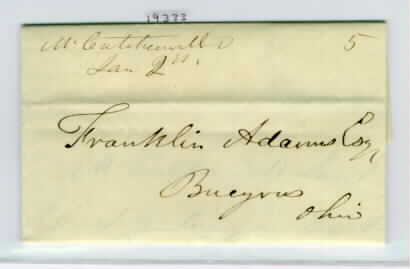 19333
McCutchenville O
Jan 2nd,
5
Franklin Adams Esq
Bucyrus
Ohio